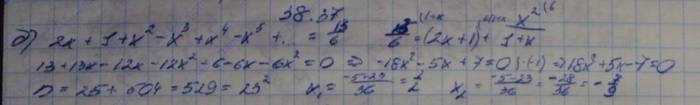 38.37
б) 2x + 1 + x² - x³ + x⁴ - x⁵ + ... = 13/6   13/6 = (2x+1) + x²/(1+x)
13 + 13x - 12x - 12x² + 6 - 6x - 6x² = 0 ⇒ -18x² - 5x + 7 = 0 |·(-1) ⇒ 18x² + 5x - 7 = 0
D = 25 + 504 = 529 = 23²   x₁ = (-5-23)/36 = 1/2   x₂ = (-5-23)/36 = -28/36 = -7/9